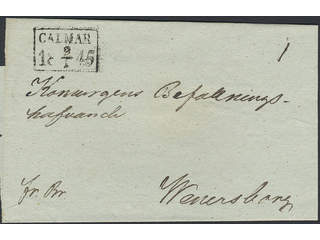 CALMAR
1
Konungens Befallnings-
hafvande
fr. Br
Wenersborg